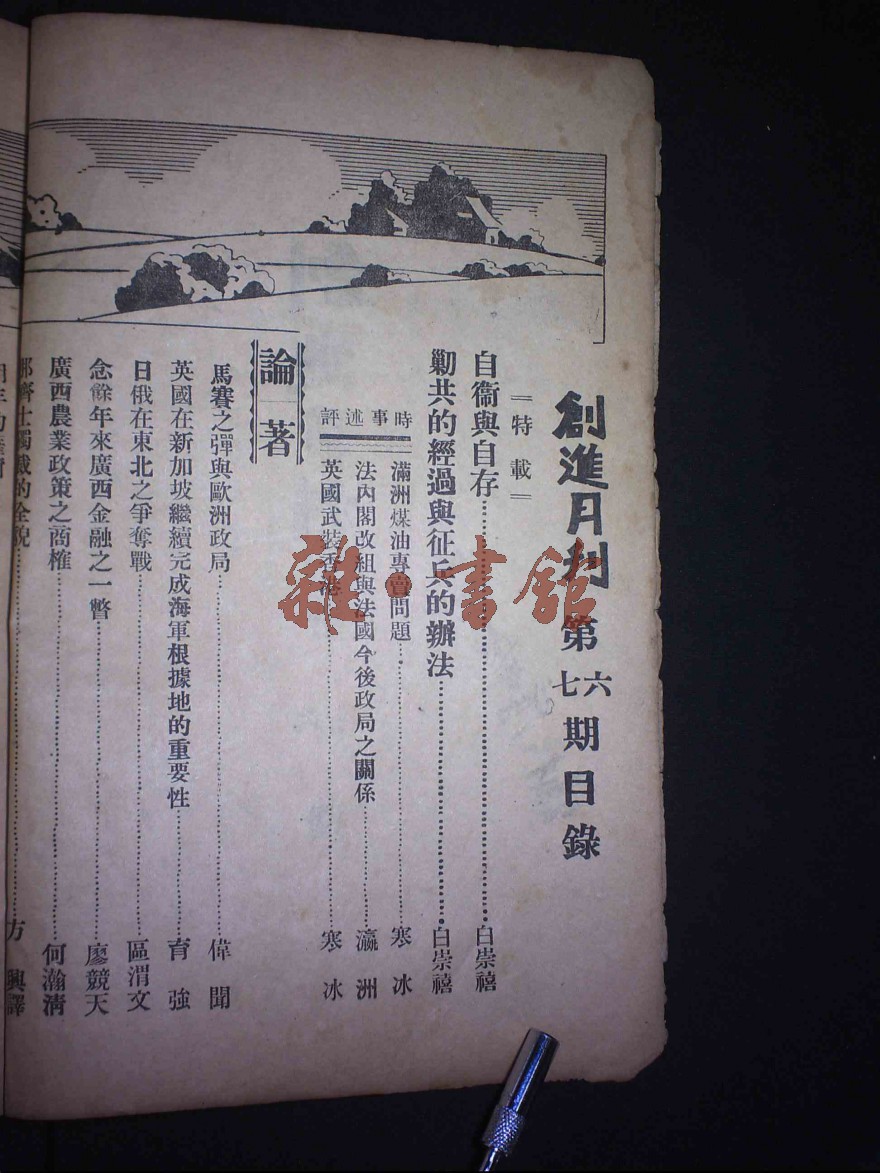 創進月刋 第六七期目錄
＝特載＝
自衞與自存……白崇禧
剿共的經過與征兵的辦法……白崇禧
時事述評
滿洲煤油專賣問題……寒冰
法內閣改組與法國今後政局之關係……瀛洲
英國武裝香港……寒冰
論著
馬賽之彈與歐洲政局……偉聞
英國在新加坡繼續完成海軍根據地的重要性……育強
日俄在東北之爭奪戰……區渭文
念餘年來廣西金融之一瞥……廖競天
廣西農業政策之商榷……何瀚清
那齊士獨裁的全貌……方興譯
雜·書館